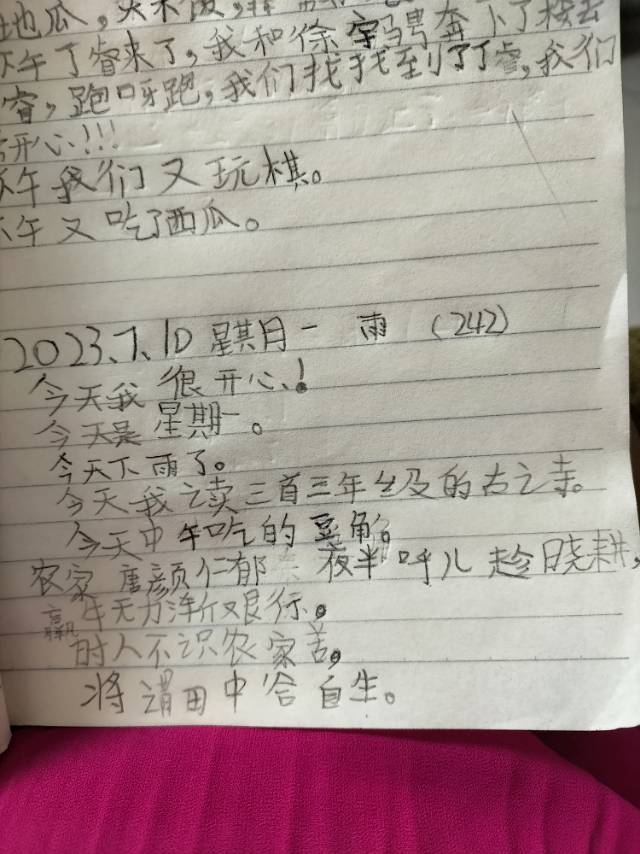 地瓜,
下午丁睿来了,我和徐宇骋奔下了楼去
睿,跑呀跑,我们找找到了丁睿,我们
开心!!!
下午我们又玩棋。
下午又吃了西瓜。
2023.7.10 星期一 雨 (242)
今天我很开心!
今天是星期一。
今天下雨了。
今天我读三首三年级的古诗。
今天中午吃的豆角。
农家 唐 颜仁郁 夜半呼儿趁晓耕,
羸牛无力渐艰行。
时人不识农家苦,
将谓田中谷自生。